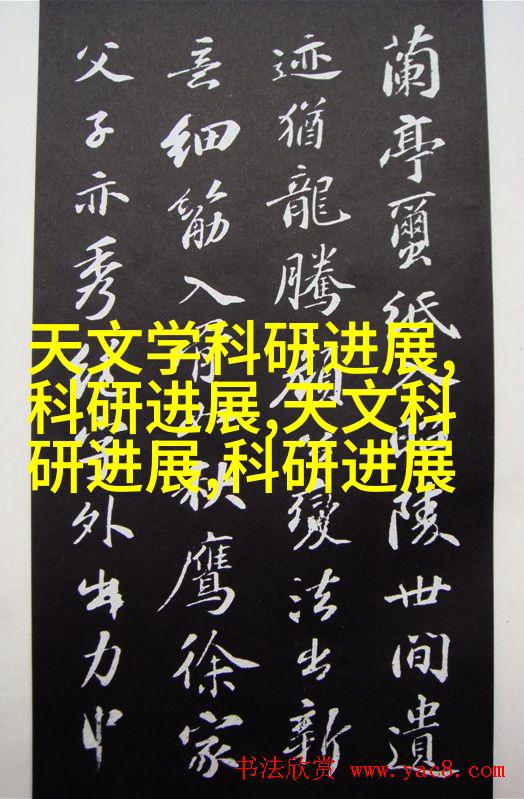 蘭亭繭紙入昭陵世間遺
迹猶龍騰顏公變法出新
意細筋入骨如秋鷹徐家
父子亦秀絕字外出力中
天文学科研进展,
科研进展,天文科
研进展,科研进展
书法欣赏 www.yac8.com